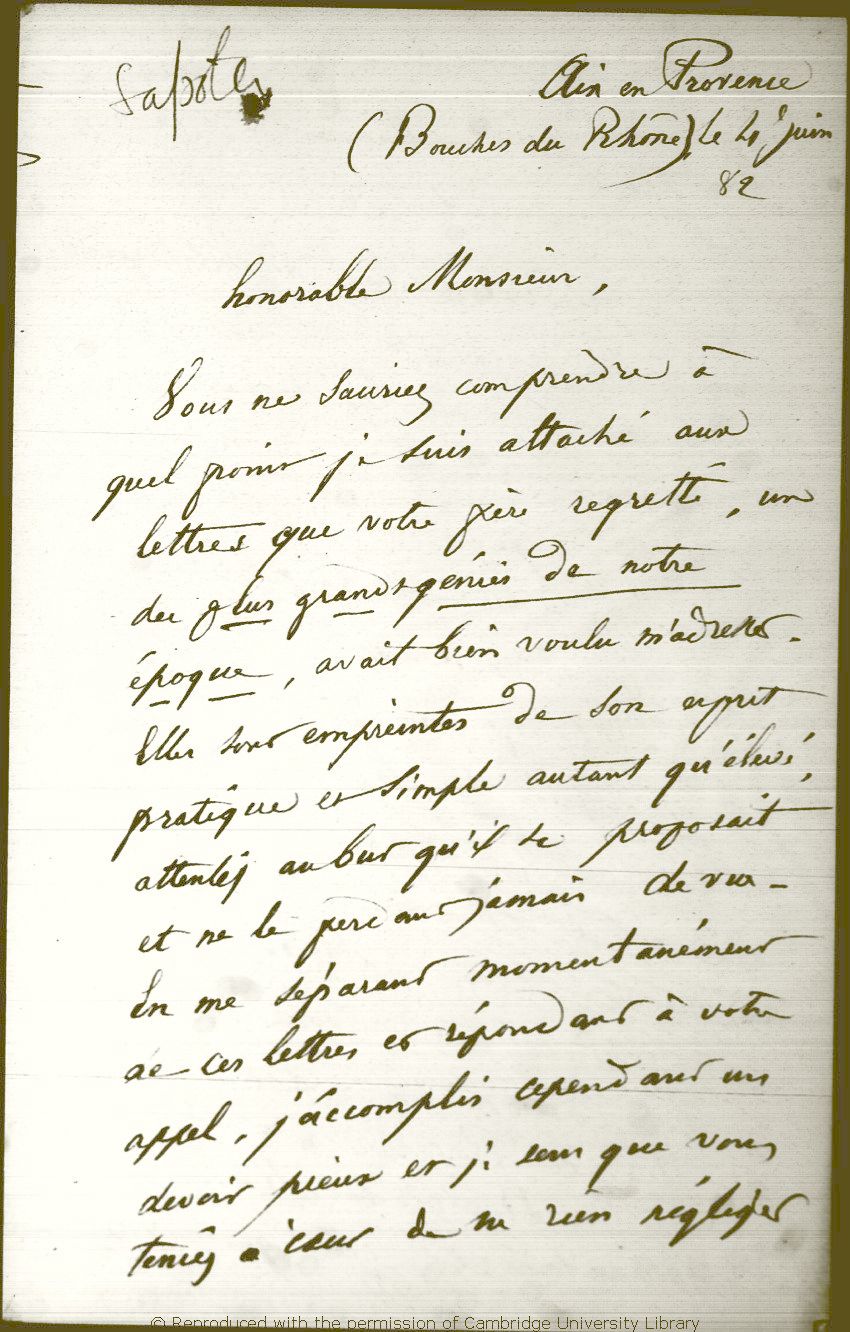 Saporta
Aix en Provence
(Bouches du Rhône), le 21 juin
82
honorable Monsieur,
Vous ne sauriez comprendre à
quel point je suis attaché aux
lettres que votre père regretté, un
des plus grands génies de notre
époque, avait bien voulu m'adresser.
Elles sont empreintes de son esprit
pratique et simple autant qu'élevé,
attentif au but qu'il se proposait
et ne le perdant jamais de vue -
En me séparant momentanément
de ces lettres et répondant à votre
appel, j'accomplis cependant un
devoir pieux et je sens que vous
teniez à cœur de ne rien négliger
© Reproduced with the permission of Cambridge University Library